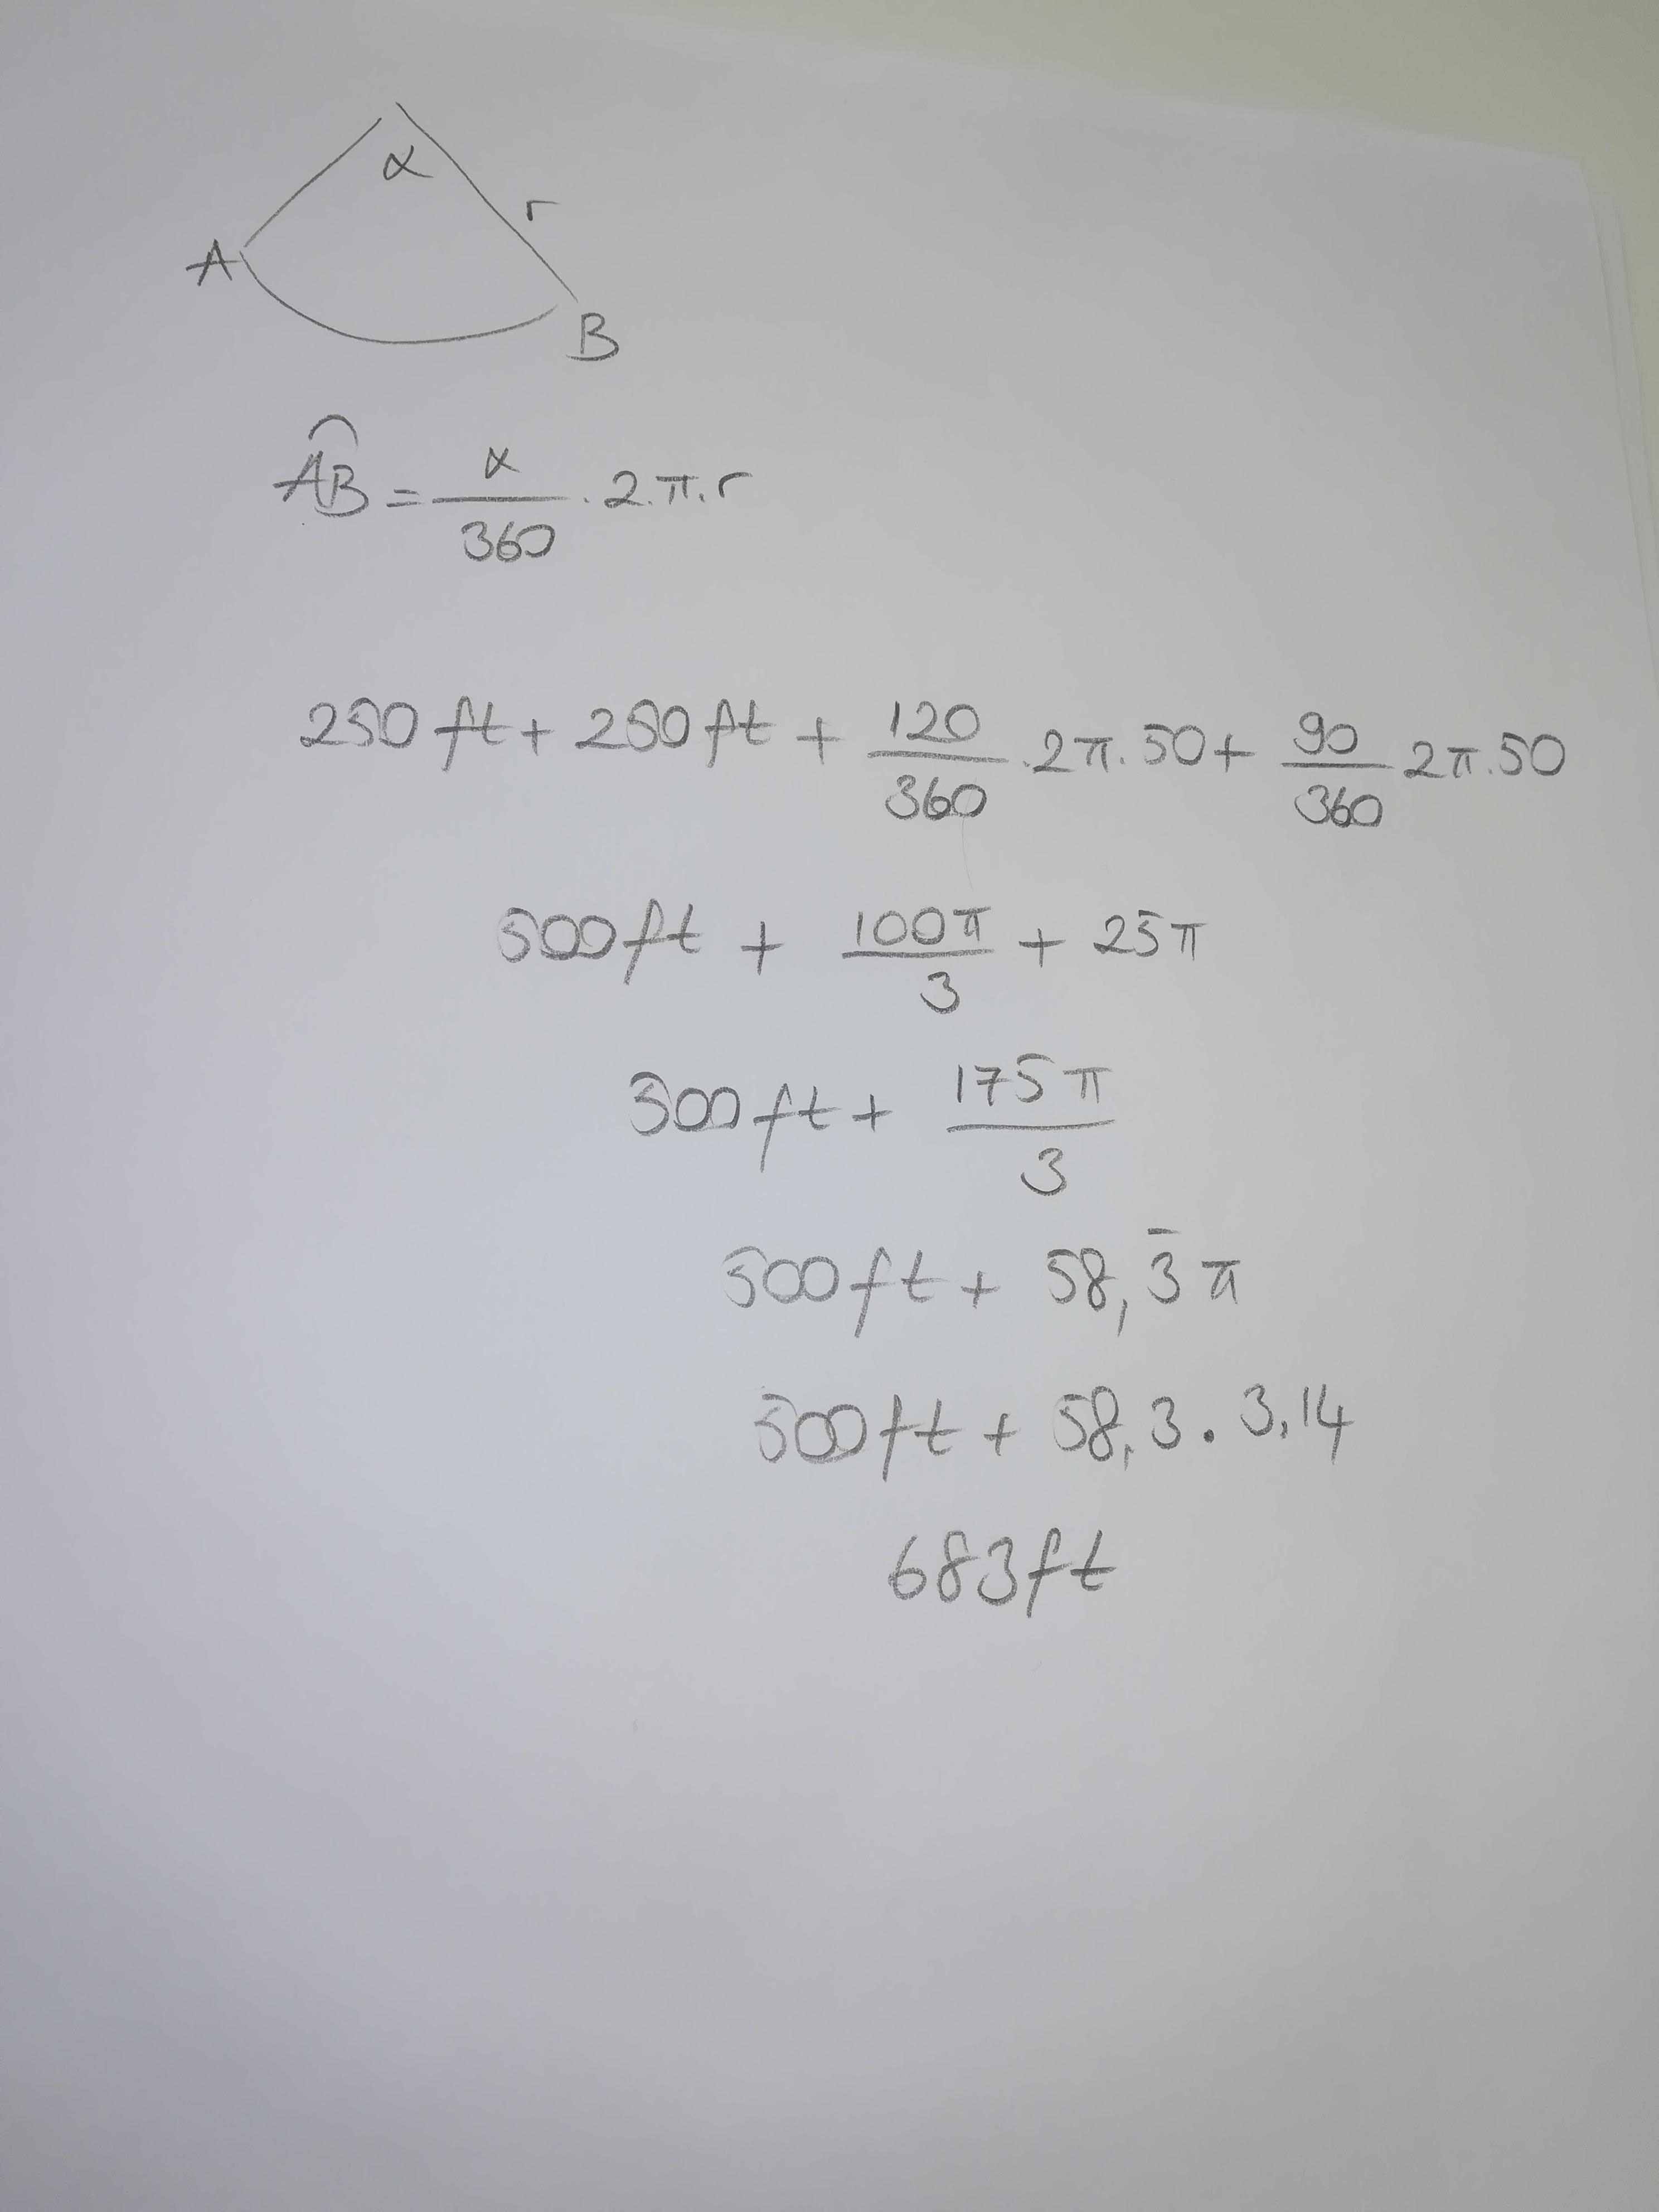 α
r
A
B
AB = α/360 . 2.π.r
250 ft + 250 ft + 120/360 . 2π.50 + 90/360 2π.50
500 ft + 100π/3 + 25π
500 ft + 175π/3
500 ft + 58,3̄ π
500 ft + 58,3 . 3,14
683 ft